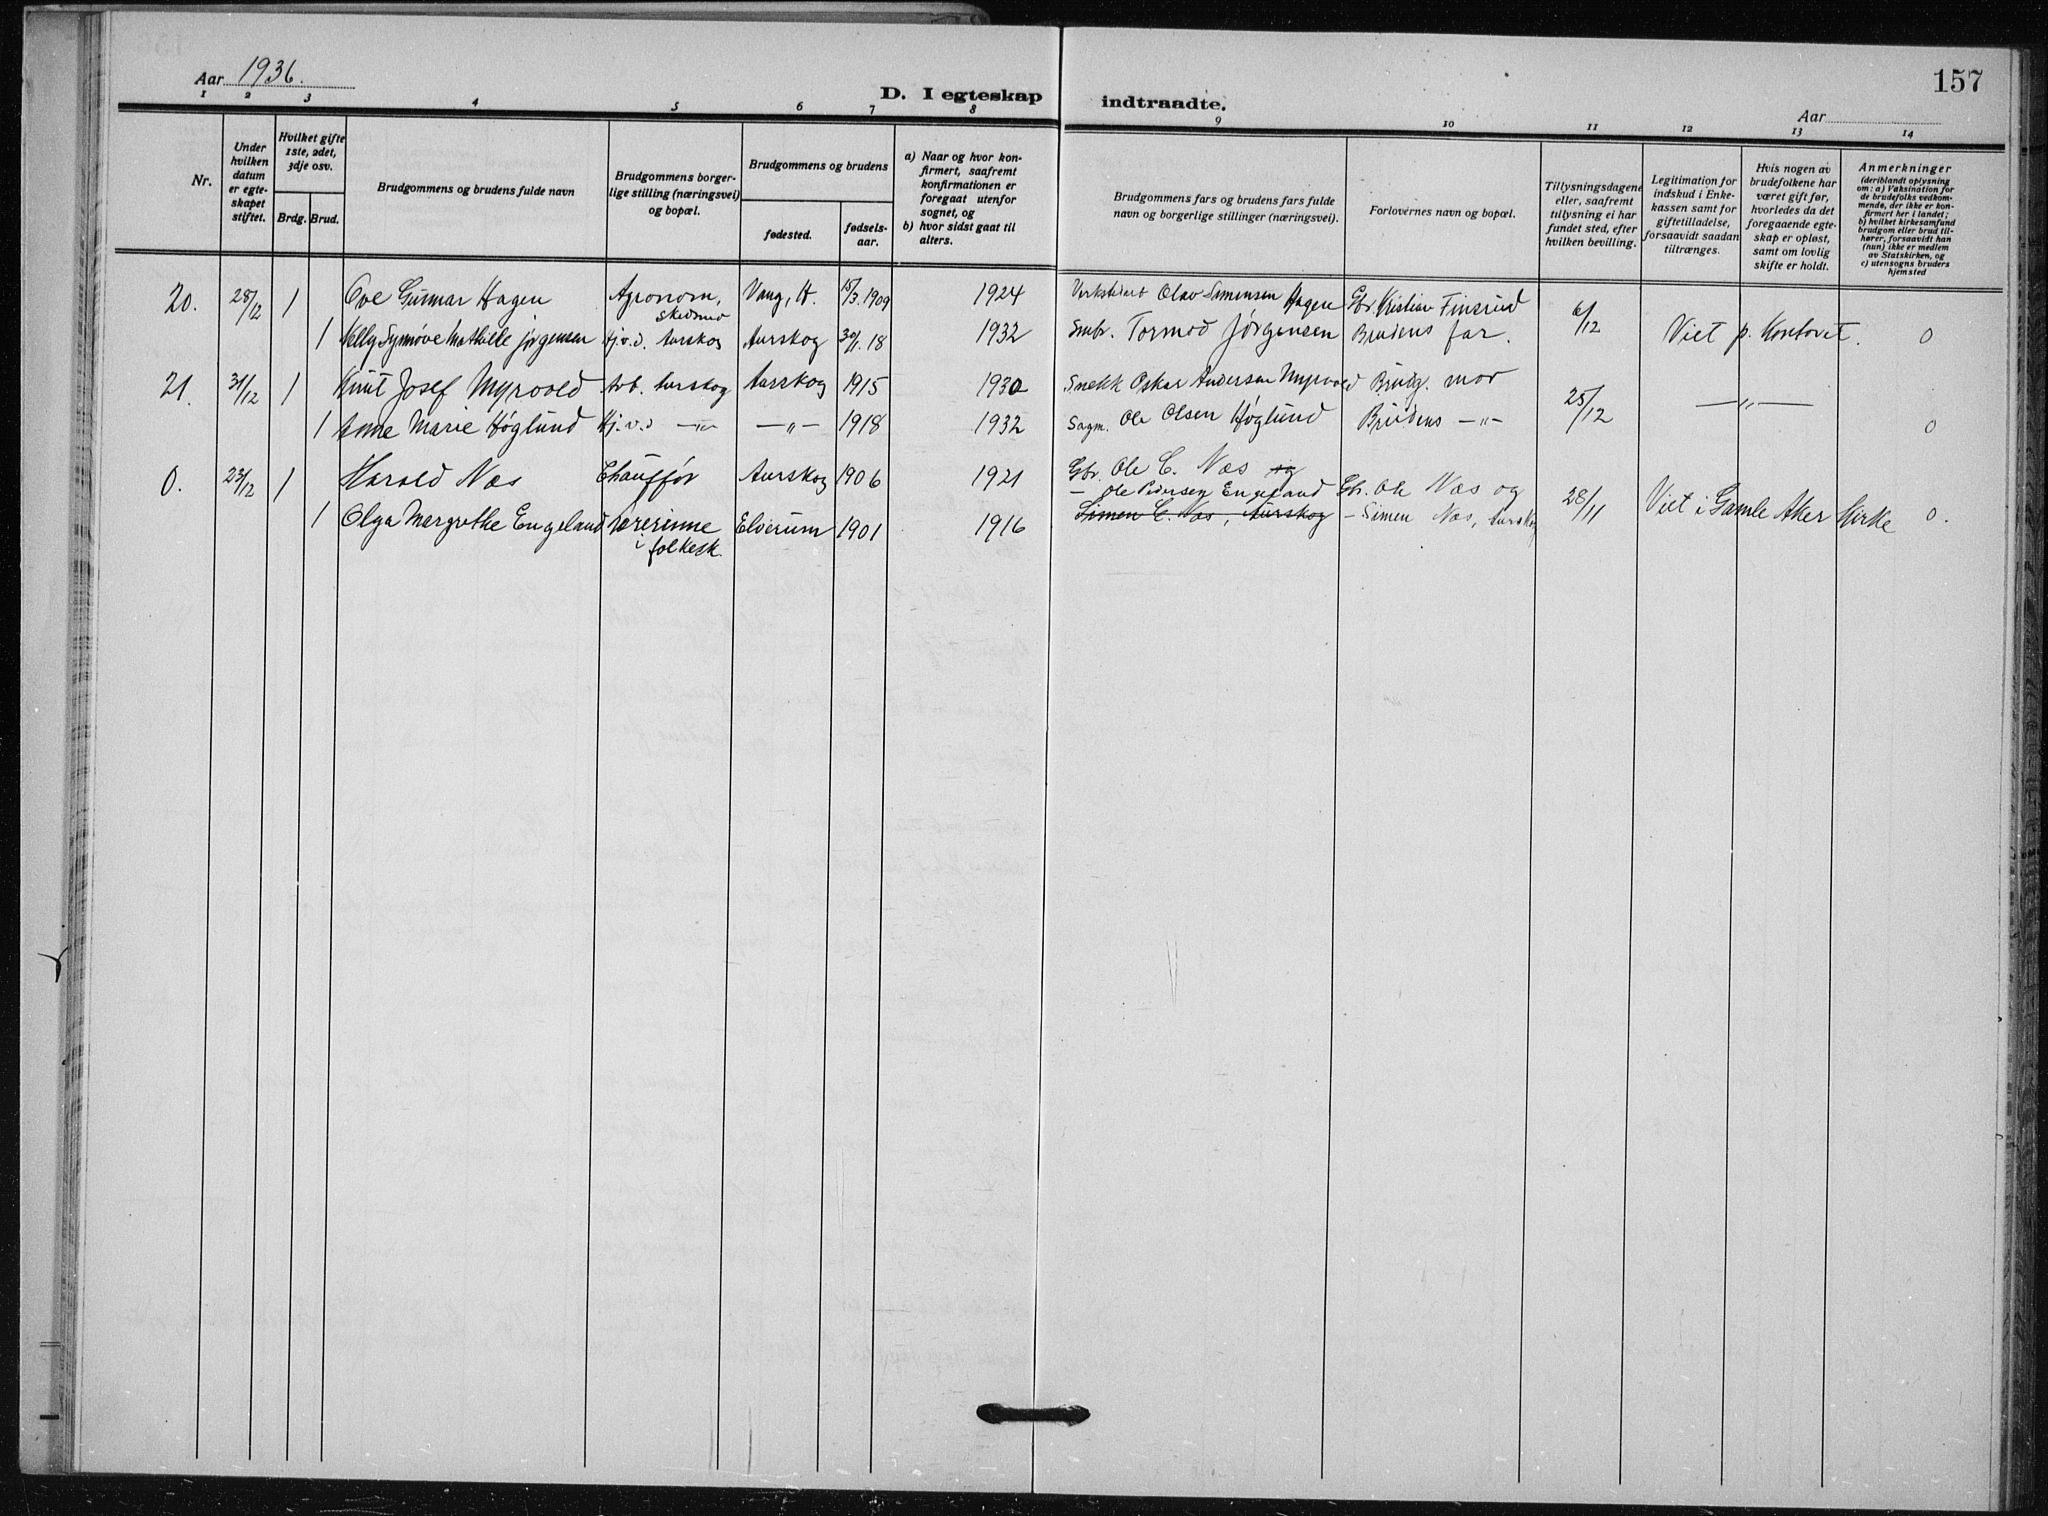 Aar 1936.
D. I egteskap indtraadte.
157
Aar
1 2 3 4 5 6 7 8 9 10 11 12 13 14
Nr.
Under hvilken datum er egteskapet stiftet.
Hvilket gifte 1ste, 2det, 3dje osv.
Brdg. Brud.
Brudgommens og brudens fulde navn
Brudgommens borgerlige stilling (næringsvei) og bopæl.
Brudgommens og brudens
fødested.
fødselsaar.
a) Naar og hvor konfirmert, saafremt konfirmationen er foregaat utenfor sognet, og
b) hvor sidst gaat til alters.
Brudgommens fars og brudens fars fulde navn og borgerlige stillinger (næringsvei).
Forlovernes navn og bopæl.
Tillysningsdagene eller, saafremt tillysning ei har fundet sted, efter hvilken bevilling.
Legitimation for indskud i Enkekassen samt for giftetilladelse, forsaavidt saadan tiltrænges.
Hvis nogen av brudefolkene har været gift før, hvorledes da det foregaaende egteskap er opløst, samt om lovlig skifte er holdt.
Anmerkninger
(deriblandt oplysning om: a) Vaksination for de brudefolks vedkommende, der ikke er konfirmert her i landet; b) hvilket kirkesamfund brudgom eller brud tilhører, forsaavidt han (hun) ikke er medlem av Statskirken, og c) utensogns bruders hjemsted
20. 28/12 1 Ove Gunnar Hagen Agronom, Skedsmo Vang, H. 15/3.1909 1924 Olav Simensen Hagen Gbr. Kristian Finsrud 6/12 Viet p. Kontoret. 0
1 Nelly Synnøve Mathilde Jørgensen Hj.v.d. Aurskog Aurskog 30/1.18 1932 Smbr. Tormod Jørgensen Brudens far.
21. 31/12 1 Knut Josef Myrvold Arb. Aurskog Aurskog 1915 1930 Snekk Oskar Andersen Myrvold Brudg. mor 25/12 —"— 0
1 Anne Marie Høglund Hj.v.d —"— —"— 1918 1932 Sagm. Ole Olsen Høglund Brudens —"—
0. 23/12 1 Harald Næs Chauffør Aurskog 1906 1921 Gbr. Ole C. Næs og
– Ole Pedersen Engeland Gbr. Ole Næs og 28/11 Viet i Gamle Aker Kirke 0.
1 Olga Margrethe Engeland lærerinne i folkesk. Elverum 1901 1916 Simen C. Næs, Aurskog – Simen Næs, Aurskog